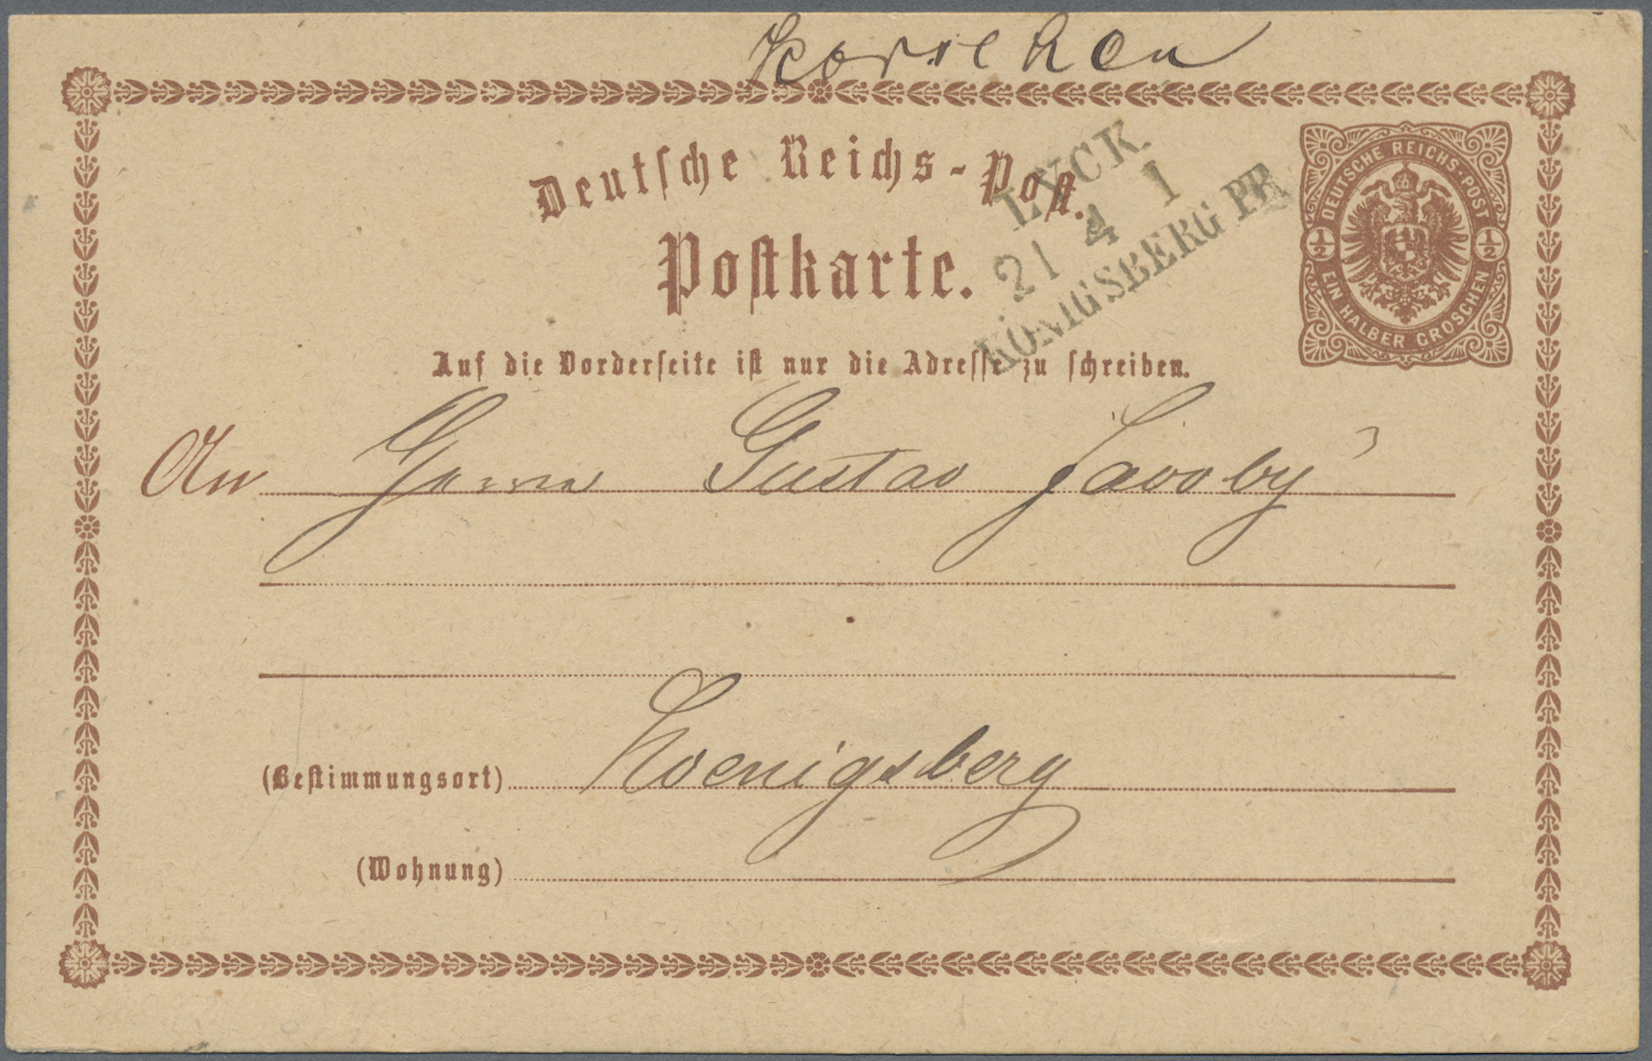 Korschen
Deutsche Reichs-Post.
Postkarte.
LYCK.
21 4 I
KÖNIGSBERG PR
DEUTSCHE REICHS-POST
½ ½
EIN HALBER GROSCHEN
Auf die Vorderseite ist nur die Adresse zu schreiben.
An Herrn Gustav Jacoby
(Bestimmungsort) Koenigsberg
(Wohnung)